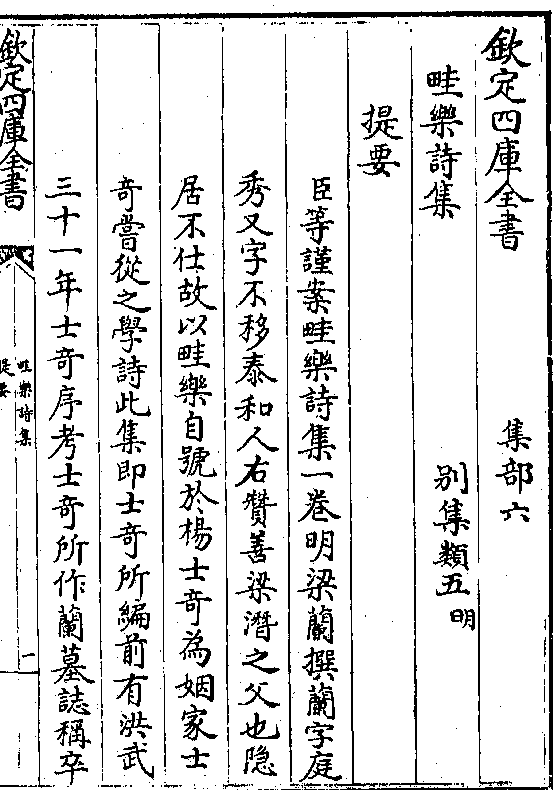 欽定四庫全書 集部六
畦樂詩集 別集類五明
提要
臣等謹案畦樂詩集一卷明梁蘭撰蘭字庭
秀又字不移泰和人右贊善梁潛之父也隐
居不仕故以畦樂自號於楊士奇為姻家士
奇嘗從之學詩此集即士奇所編前有洪武
三十一年士奇序考士奇所作蘭墓誌稱卒
欽定四庫全書
畦樂詩集
提要
一